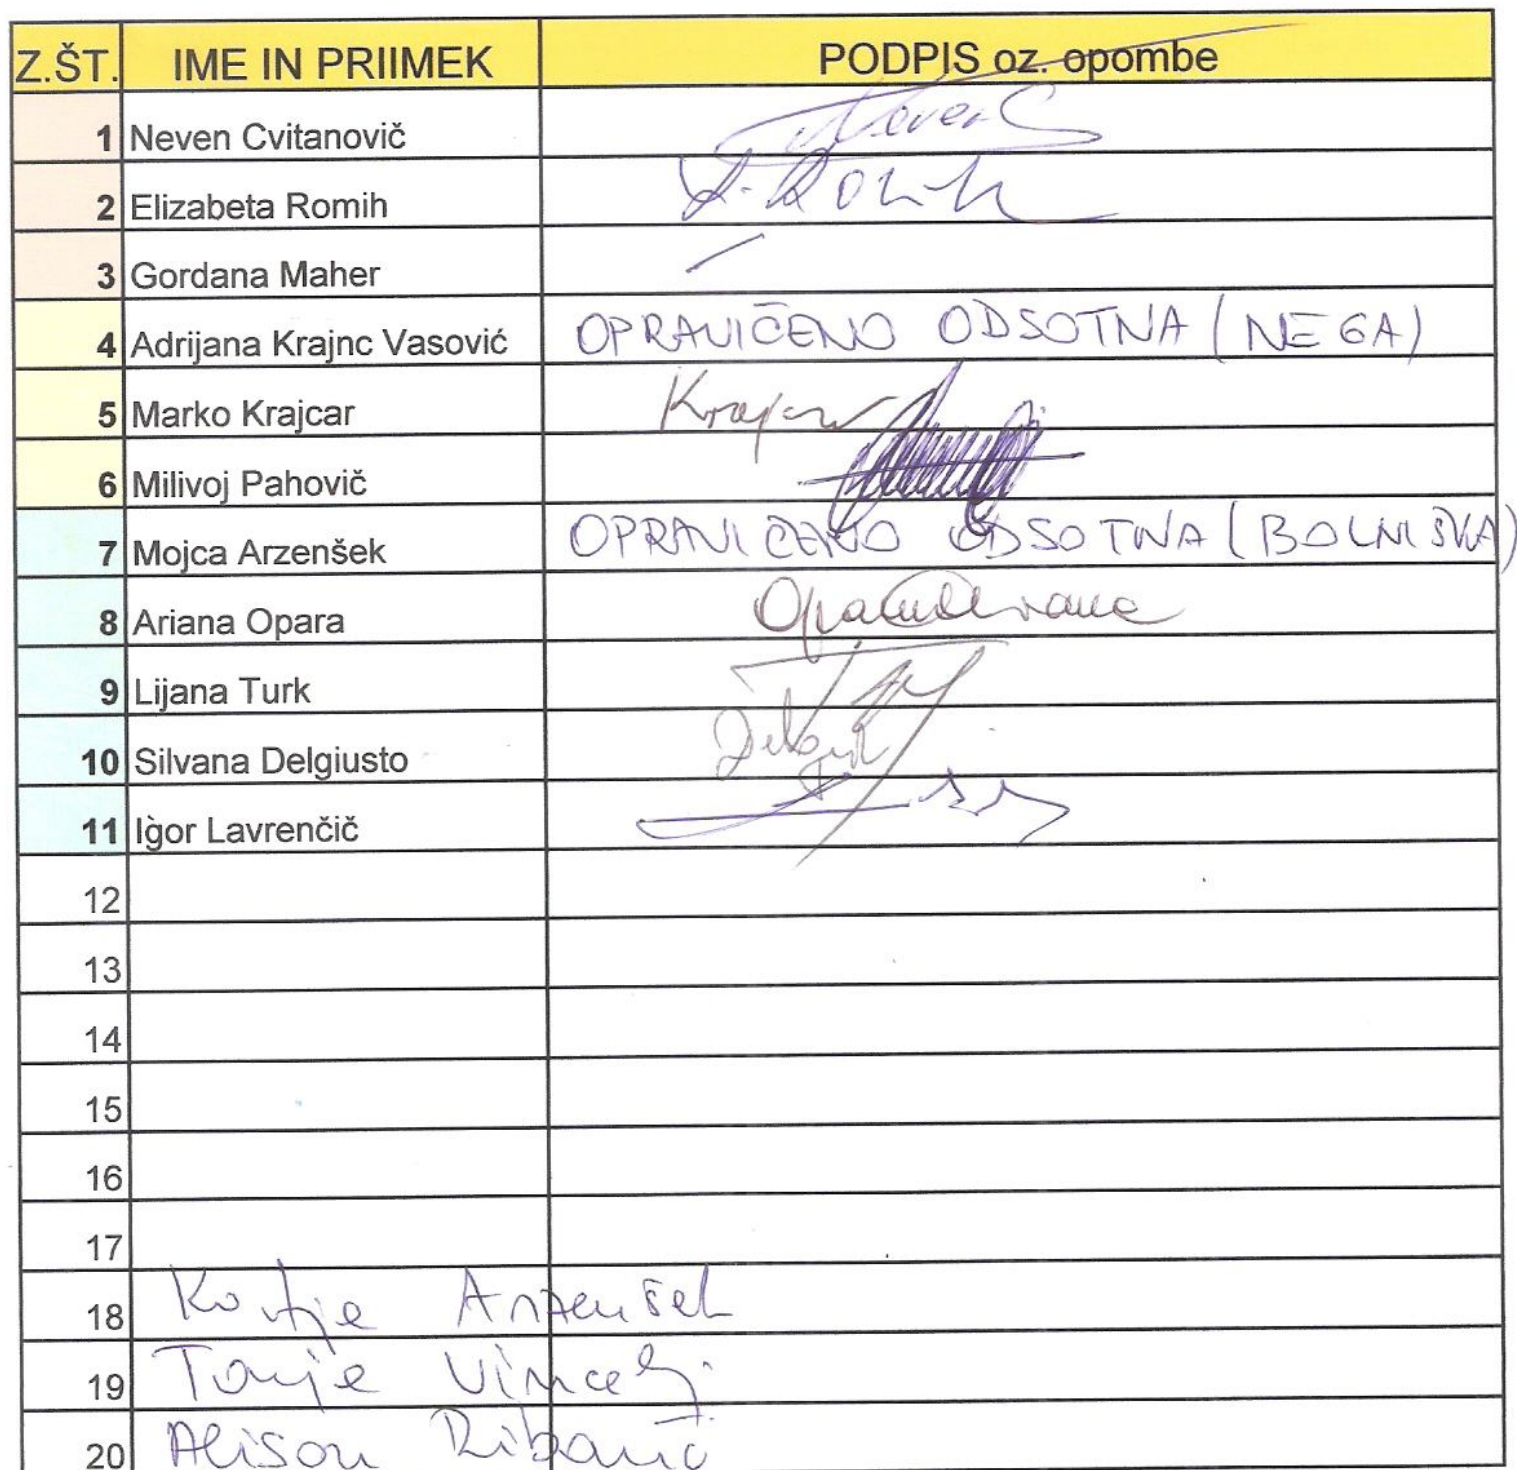 Z.ŠT. IME IN PRIIMEK PODPIS oz. opombe
1 Neven Cvitanovič Neven C
2 Elizabeta Romih
3 Gordana Maher /
4 Adrijana Krajnc Vasović OPRAVIČENO ODSOTNA (NEGA)
5 Marko Krajcar Krajcar
6 Milivoj Pahovič
7 Mojca Arzenšek OPRAVIČENO ODSOTNA (BOLNIŠKA)
8 Ariana Opara
9 Lijana Turk
10 Silvana Delgiusto
11 Igor Lavrenčič
12
13
14
15
16
17
18 Katja Arzenšek
19 Tanja Vincelj
20 Alison Ribarić